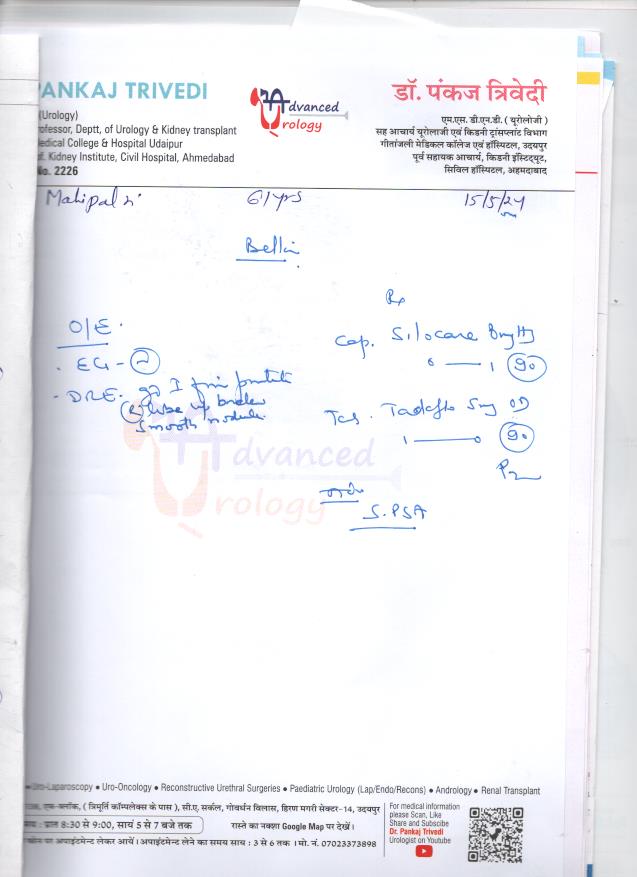 PANKAJ TRIVEDI
(Urology)
rofessor, Deptt, of Urology & Kidney transplant
edical College & Hospital Udaipur
f. Kidney Institute, Civil Hospital, Ahmedabad
No. 2226
Advanced
Urology
डॉ. पंकज त्रिवेदी
एम.एस. डी.एन.डी. ( यूरोलोजी )
सह आचार्य यूरोलाजी एवं किडनी ट्रांसप्लांट विभाग
गीतांजली मेडिकल कॉलेज एवं हॉस्पिटल, उदयपुर
पूर्व सहायक आचार्य, किडनी इंस्टिट्यूट,
सिविल हॉस्पिटल, अहमदाबाद
Mahipal 61yrs 15/5/24
Rx
O/E.
Cap. Silocare 8mg HS
0 — 1 90
EG -
- DRE. gr I firm prostate
smooth nodule.
Tab. 5mg OD
1 — 0 90
Advanced
Urology
S. PSA
Uro-Laparoscopy • Uro-Oncology • Reconstructive Urethral Surgeries • Paediatric Urology (Lap/Endo/Recons) • Andrology • Renal Transplant
एफ-ब्लॉक, ( त्रिमूर्ति कॉम्पलेक्स के पास ), सी.ए. सर्कल, गोवर्धन विलास, हिरण मगरी सेक्टर-14, उदयपुर
प्रात 8:30 से 9:00, सायं 5 से 7 बजे तक रास्ते का नक्शा Google Map पर देखें।
अपाइंटमेन्ट लेकर आयें। अपाइंटमेन्ट लेने का समय सायं : 3 से 6 तक । मो. नं. 07023373898
For medical information
please Scan, Like
Share and Subscibe
Dr. Pankaj Trivedi
Urologist on Youtube